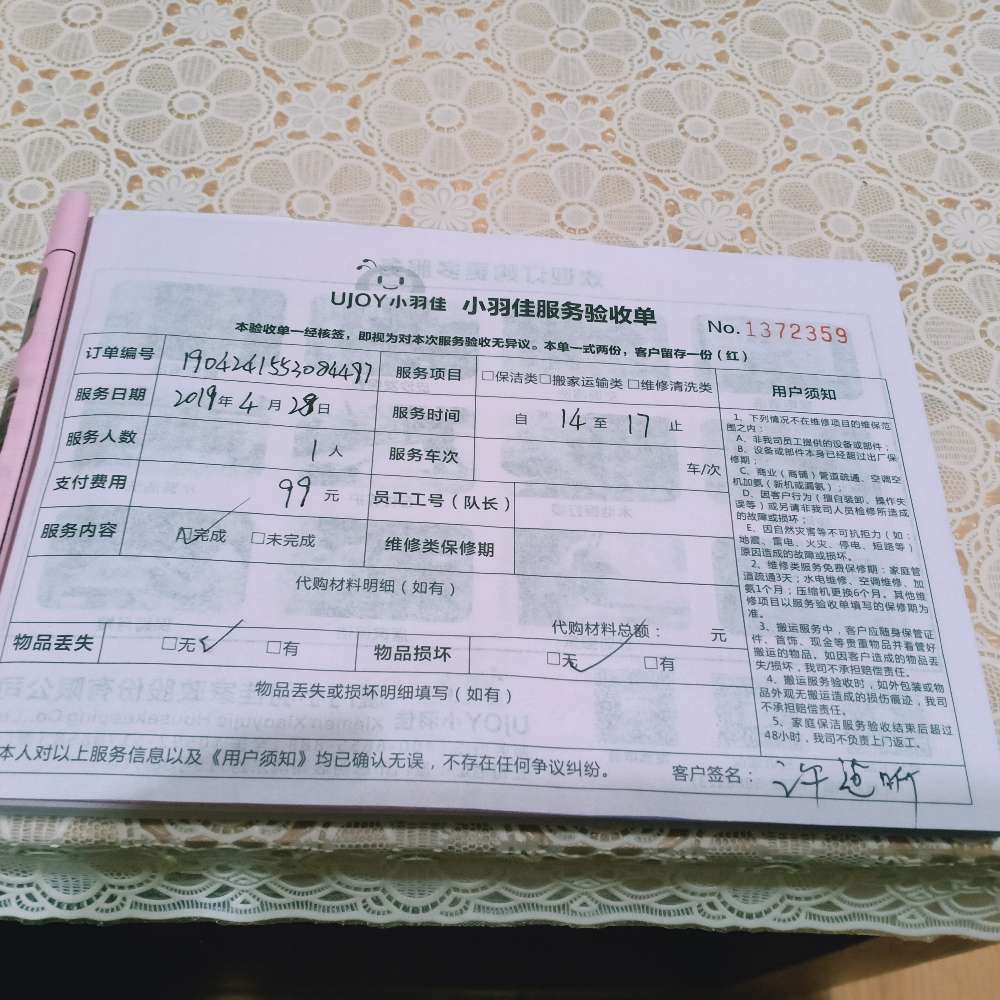 UJOY小羽佳 小羽佳服务验收单
No.1372359
本验收单一经核签，即视为对本次服务验收无异议。本单一式两份，客户留存一份（红）
订单编号 1904241553084497 服务项目 □保洁类□搬家运输类 □维修清洗类
服务日期 2019年4月28日 服务时间 自 14 至 17 止
服务人数 1人 服务车次 车/次
支付费用 99元 员工工号（队长）
服务内容 □完成 □未完成 维修类保修期
代购材料明细（如有）
代购材料总额： 元
物品丢失 □无 □有 物品损坏 □无 □有
物品丢失或损坏明细填写（如有）
本人对以上服务信息以及《用户须知》均已确认无误，不存在任何争议纠纷。 客户签名：
用户须知
1、下列情况不在维修项目的维保范
围之内：
A、非我司员工提供的设备或部件；
B、设备或部件本身已经超过出厂保
修期；
C、商业（商铺）管道疏通、空调空
机加氨（新机或漏氨）；
D、因客户行为（擅自装卸、操作失
误等）或另请非我司人员检修所造成
的故障或损坏；
E、因自然灾害等不可抗拒力（如：
地震、雷电、火灾、停电、短路等）
原因造成的故障或损坏。
2、维修类服务免费保修期：家庭管
道疏通3天；水电维修、空调维修、加
氨1个月；压缩机更换6个月。其他维
修项目以服务验收单填写的保修期为
准。
3、搬运服务中，客户应随身保管证
件、首饰、现金等贵重物品并看管好
搬运的物品。如因客户造成的物品丢
失/损坏，我司不承担赔偿责任。
4、搬运服务验收时，如外包装或物
品外观无搬运造成的损伤痕迹，我司
不承担赔偿责任。
5、家庭保洁服务验收结束后超过
48小时，我司不负责上门返工。